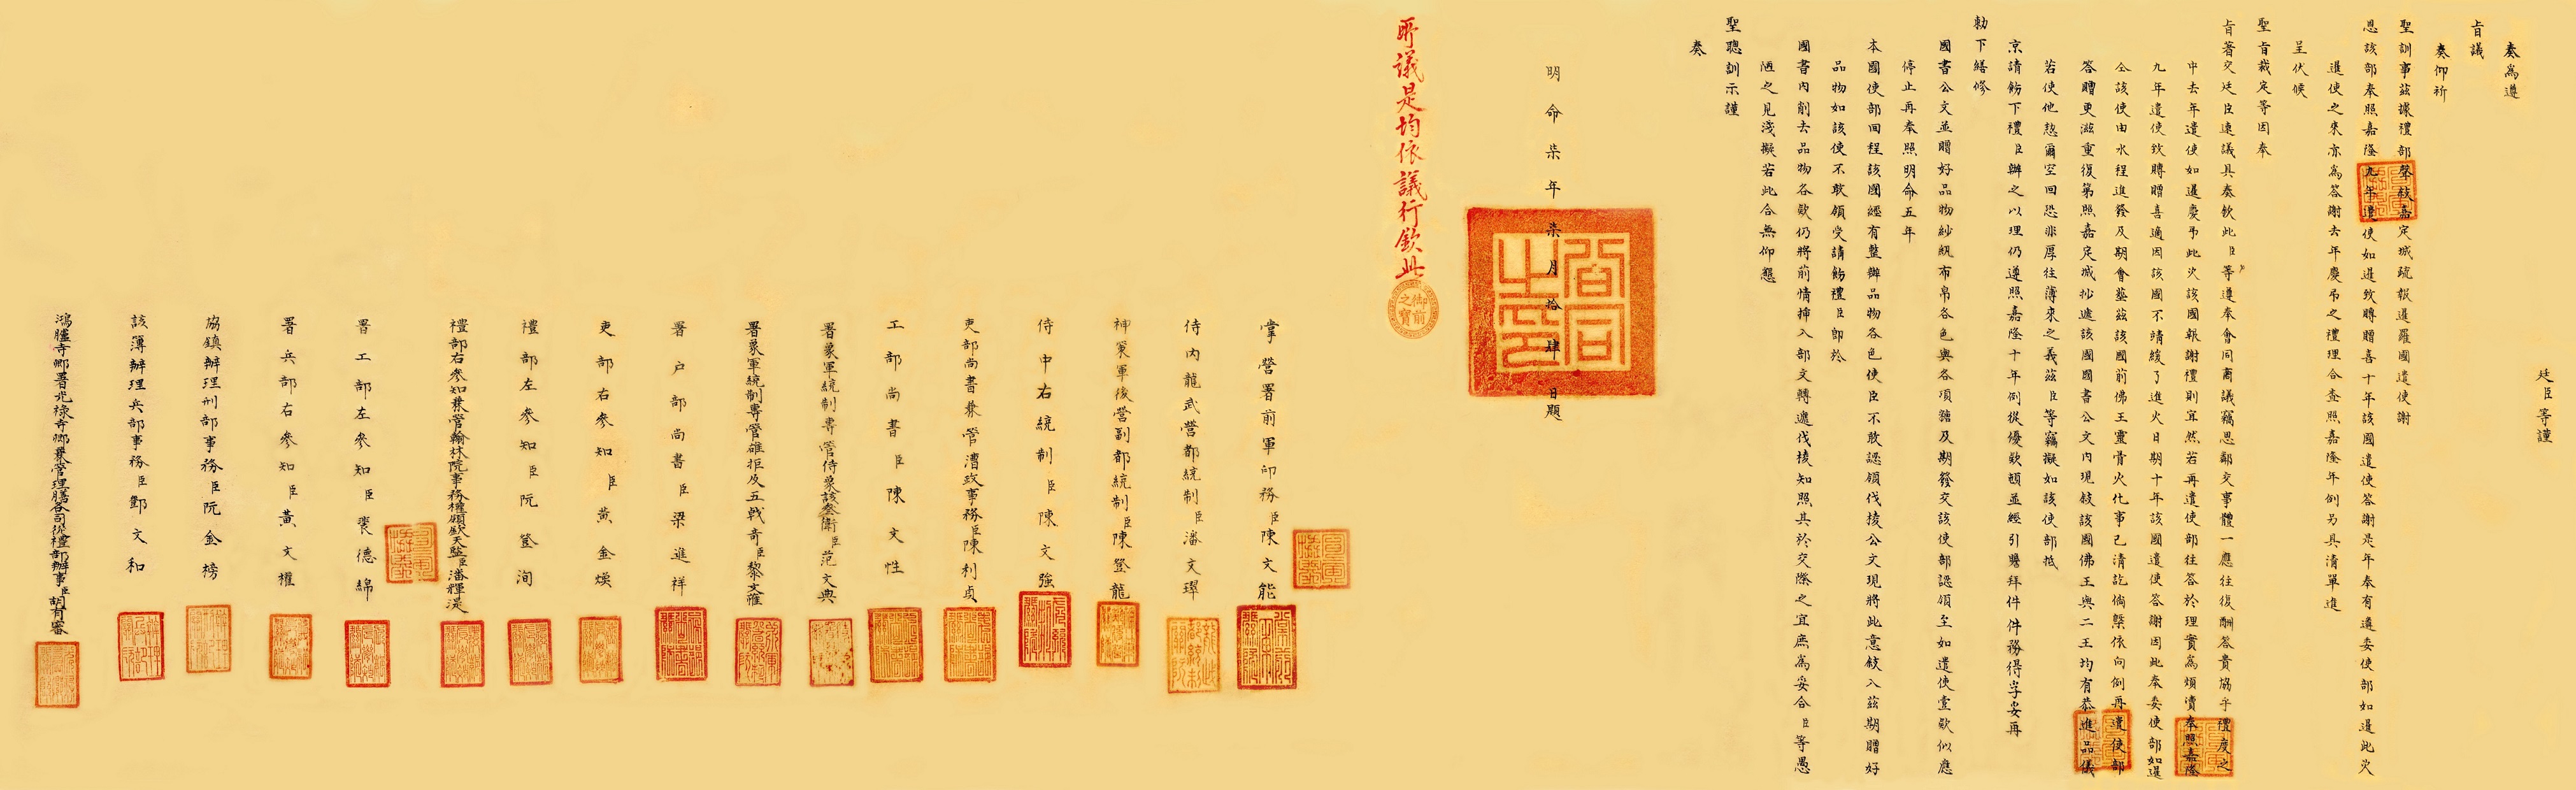 廷臣等謹
奏為遵
旨議
奏仰祈
聖訓事茲據禮部聲敘嘉定城疏報暹羅國遣使謝
恩該部奉照嘉隆九年遣使如暹致賻贈喜十年該國遣使答謝是年奉有遴委使部如暹此次
暹使之來亦為答謝去年慶吊之禮理合查照嘉隆年例另具清單進
呈伏候
聖旨裁定等因奉
旨著交廷臣速議具奏欽此臣等遵奉會同商議竊思鄰交事體一應往復酬答貴協乎禮度之
中去年遣使如暹慶吊此次該國報謝禮則宜然若再遣使部往答於理實為煩瀆奉照嘉隆
九年遣使致賻贈喜適因該國不靖緩了進火日期十年該國遣使答謝因此奉委使部如暹
仝該使由水程進發及期會葬茲該國前佛王靈骨火化事已清訖倘槩依向例再遣使部
答贈更滋重復第照嘉定城抄遞該國國書公文內現敘該國佛王與二王均有恭進品儀
若使他愁爾空回恐非厚往薄來之義茲臣等竊擬如該使部抵
京請飭下禮臣辦之以理仍遵照嘉隆十年例從優欵頓並經引瞻拜件件務得字妥再
勅下繕修
國書公文並贈好品物紗紈布帛各色與各項鏸及期發交該使部認領至如遣使壹欵似應
停止再奉照明命五年
本國使部回程該國經有整辦品物各色使臣不敢認領伐棱公文現將此意敘入茲期贈好
品物如該使不敢領受請飭禮臣即於
國書內削去品物各欵仍將前情揷入部文轉遞伐棱知照其於交際之宜庶為妥合臣等愚
陋之見淺擬若此合無仰懇
聖聰訓示謹
奏
明命柒年柒月拾肆日題
所議是均依議行欽此
御前之寶
掌營署前軍印務臣陳文能
侍內龍武營都統制臣潘文璻
神策軍後營副都統制臣陳登龍
侍中右統制臣陳文強
吏部尚書兼管漕政事務臣陳利貞
工部尚書臣陳文性
署象軍統制專管侍象該叄衛臣范文典
署象軍統制專管雄拒及五戟奇臣黎文雅
署戶部尚書臣梁進祥
吏部右參知臣黃金煥
禮部左參知臣阮登洵
禮部右參知兼管翰林院事務權領欽天監臣潘輝湜
署工部左參知臣裴德綿
署兵部右參知臣黃文權
協鎮辦理刑部事務臣阮金榜
該簿辦理兵部事務臣鄧文和
鴻臚寺卿署光祿寺卿兼管理膳各司從禮部辦事臣胡有審